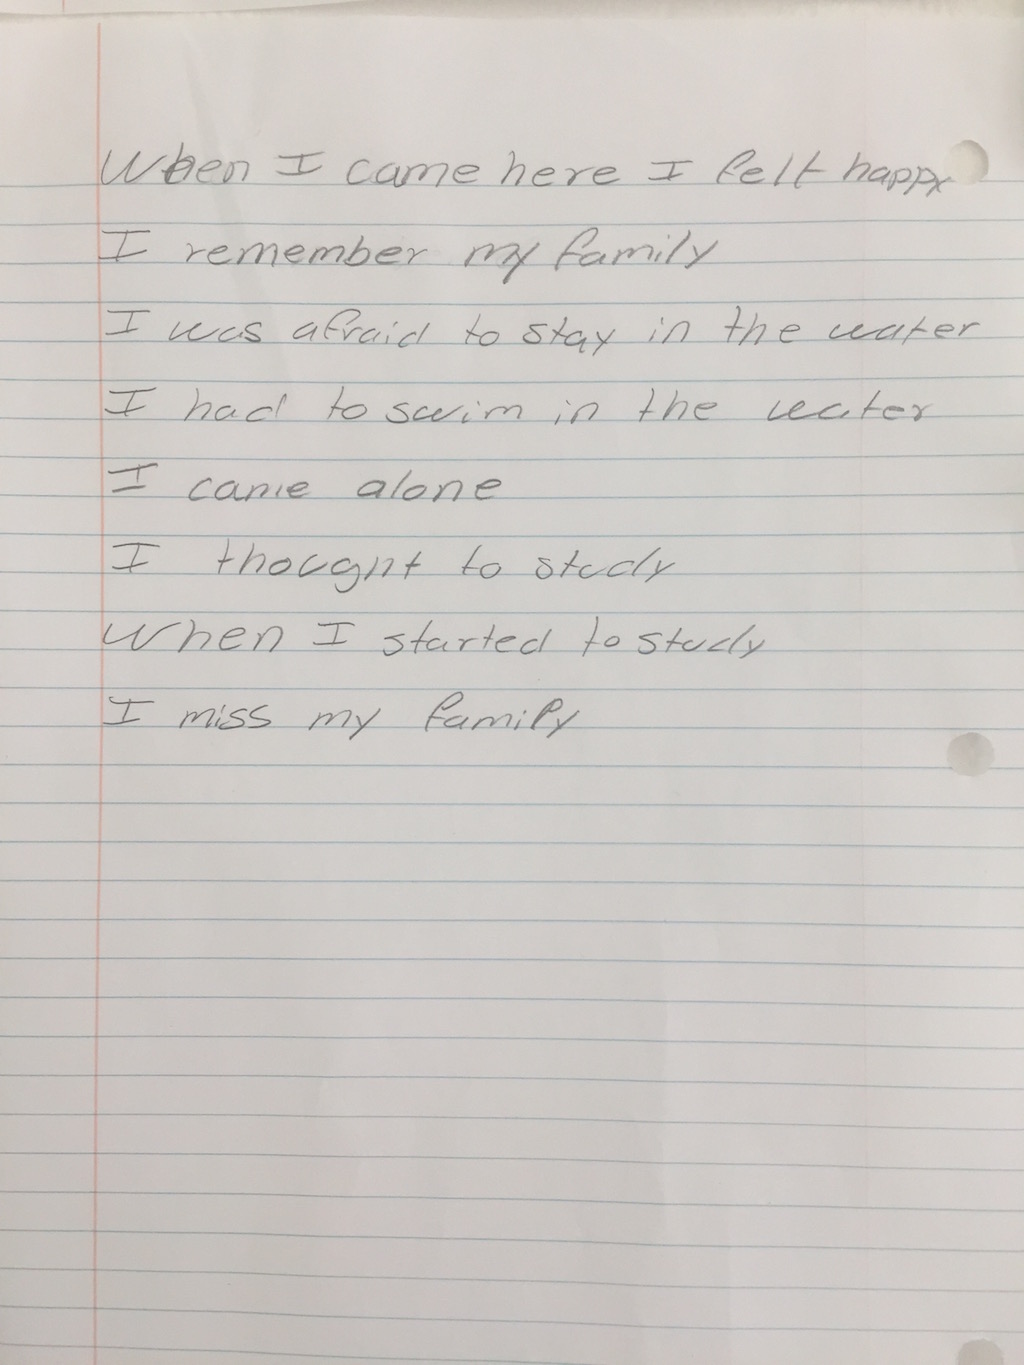 When I came here I felt happy
I remember my family
I was afraid to stay in the water
I had to swim in the water
I came alone
I thought to study
When I started to study
I miss my family